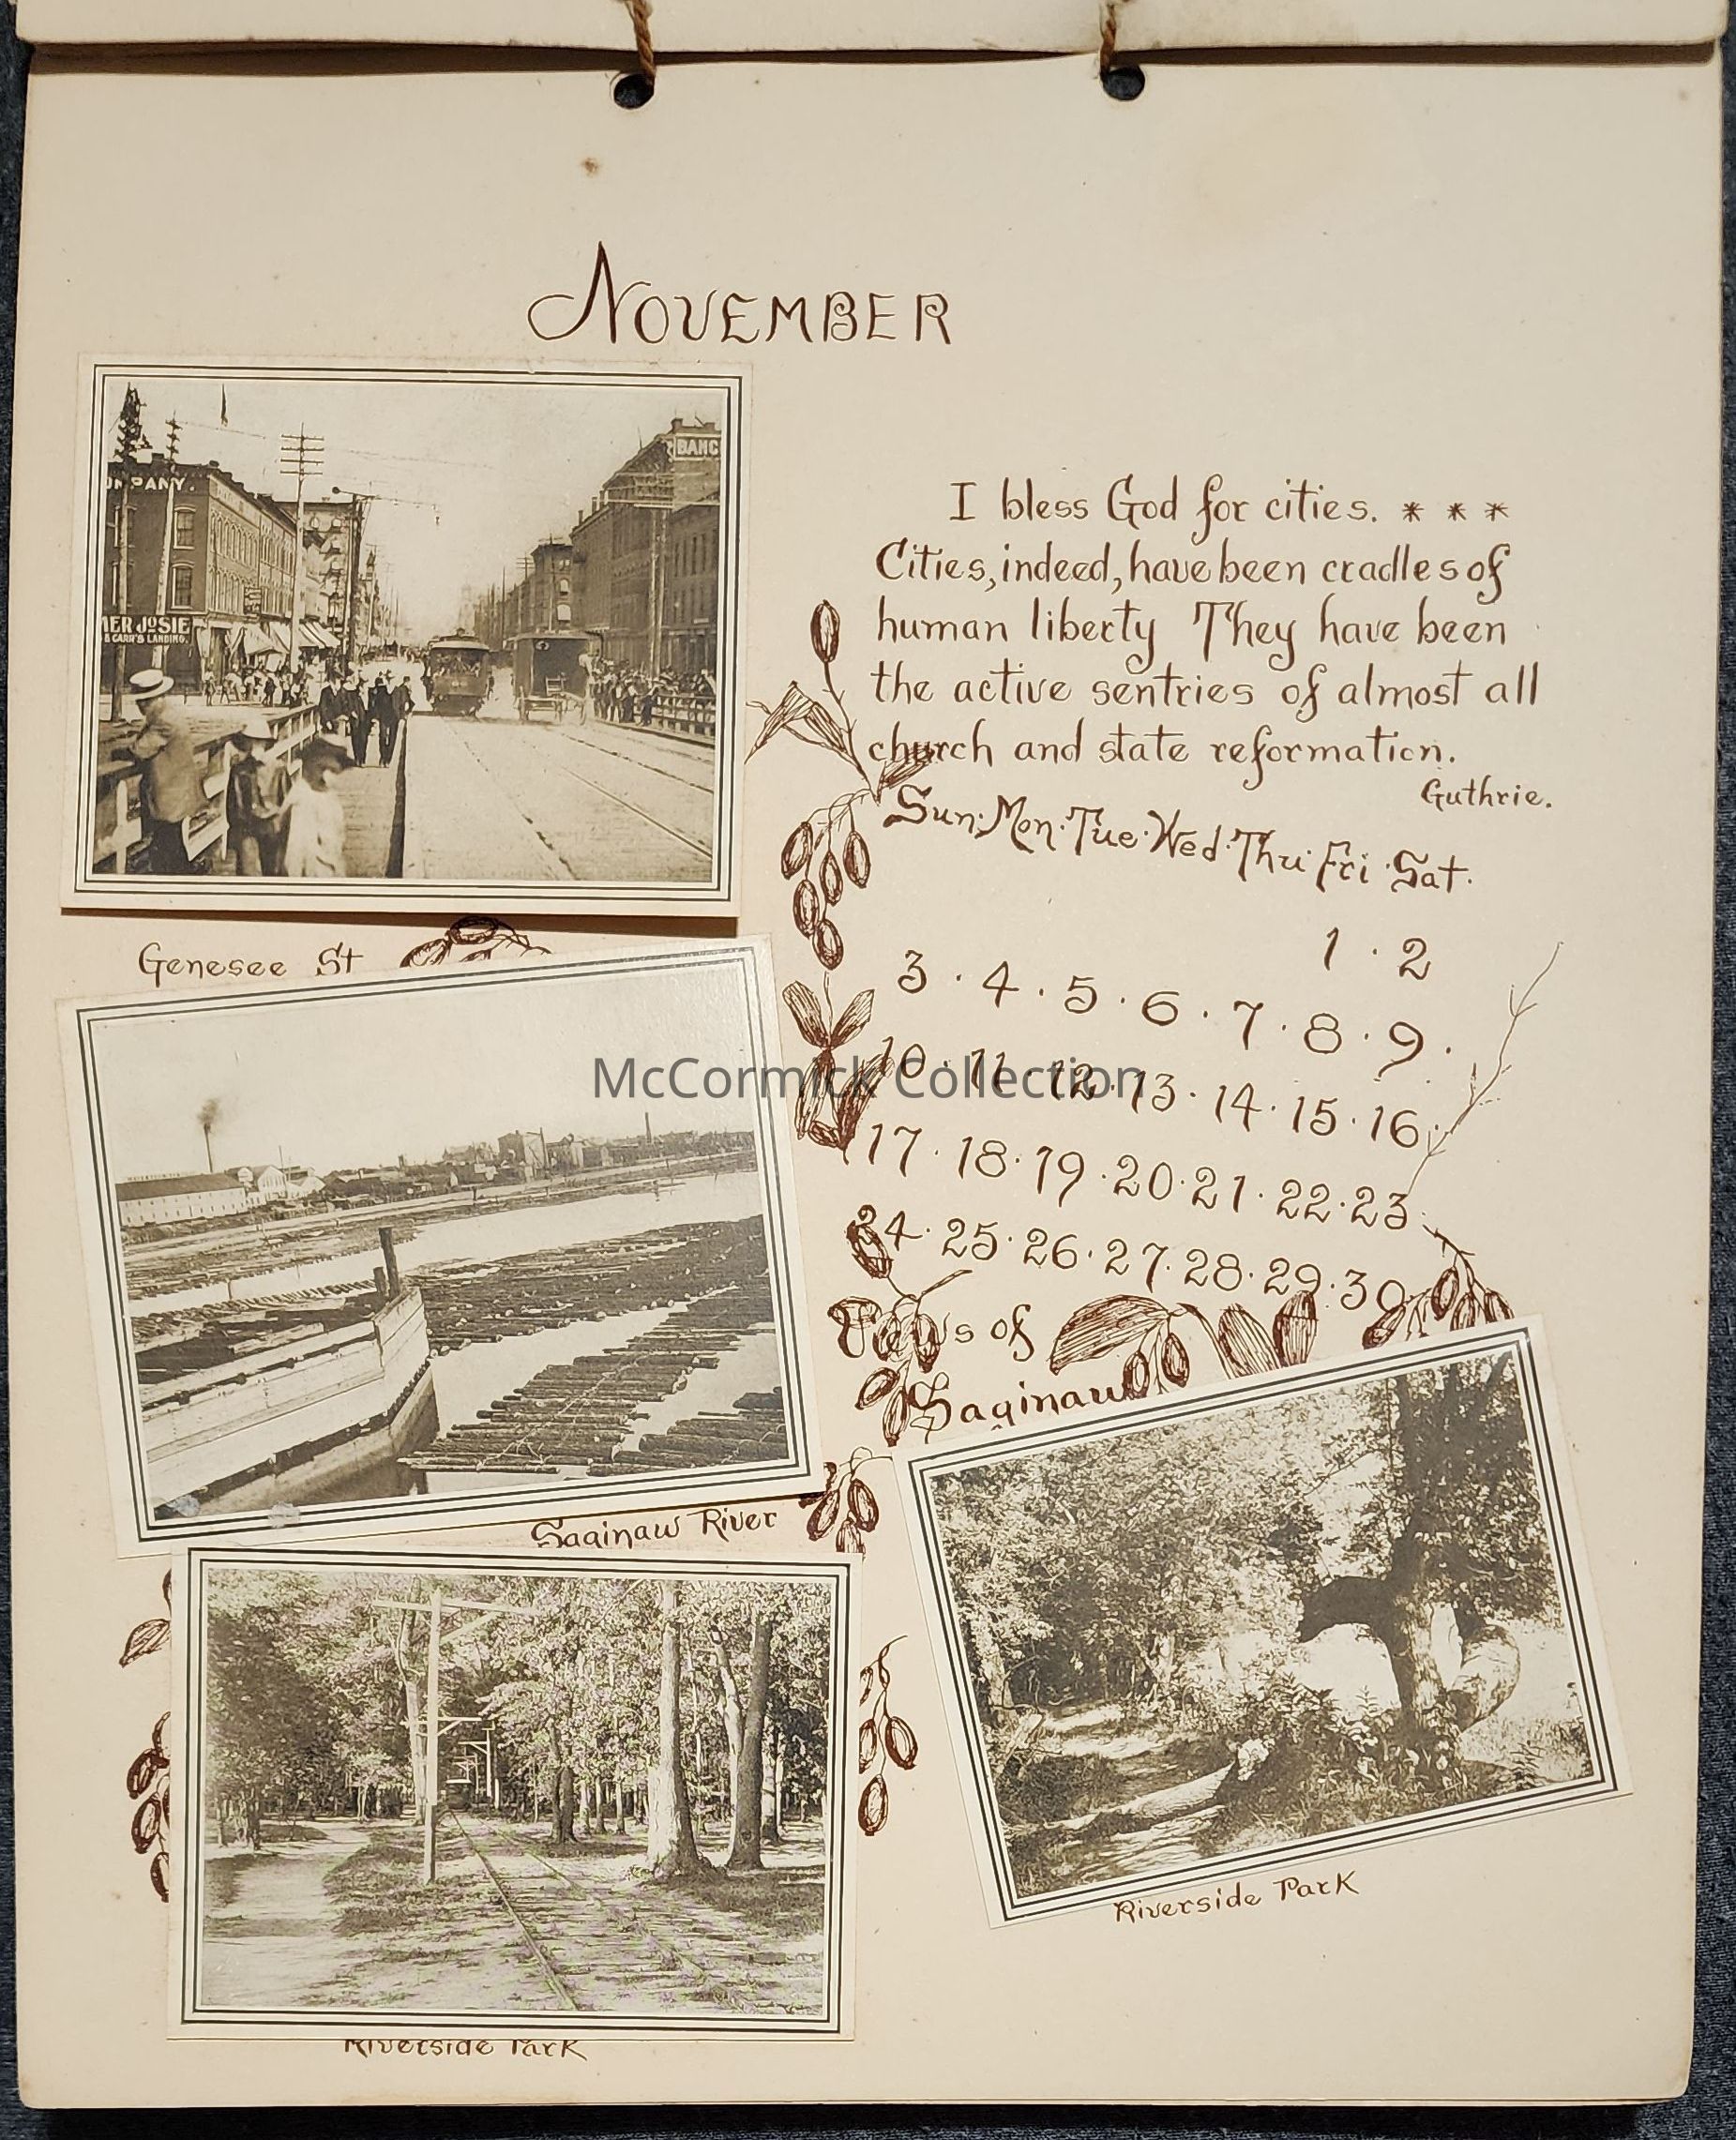 November
OMPANY.
BANC
MER JOSIE
& CARR'S LANDING.
I bless God for cities. * * *
Cities, indeed, have been cradles of
human liberty They have been
the active sentries of almost all
church and state reformation.
Guthrie.
Sun· Mon· Tue· Wed· Thu· Fri· Sat.
1 · 2
3 · 4 · 5 · 6 · 7 · 8 · 9 ·
10 · 11 · 12 · 13 · 14 · 15 · 16 ·
17 · 18 · 19 · 20 · 21 · 22 · 23 ·
24 · 25 · 26 · 27 · 28 · 29 · 30
Views of
Saginaw
Genesee St
McCormick Collection
Saginaw River
Riverside Park
Riverside Park